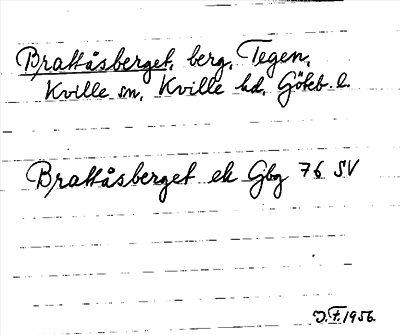 Brattåsberget, berg, Tegen,
Kville sn, Kville hd, Göteb. l.
Brattåsberget ek Gbg 76 SV
J.F. 1956.